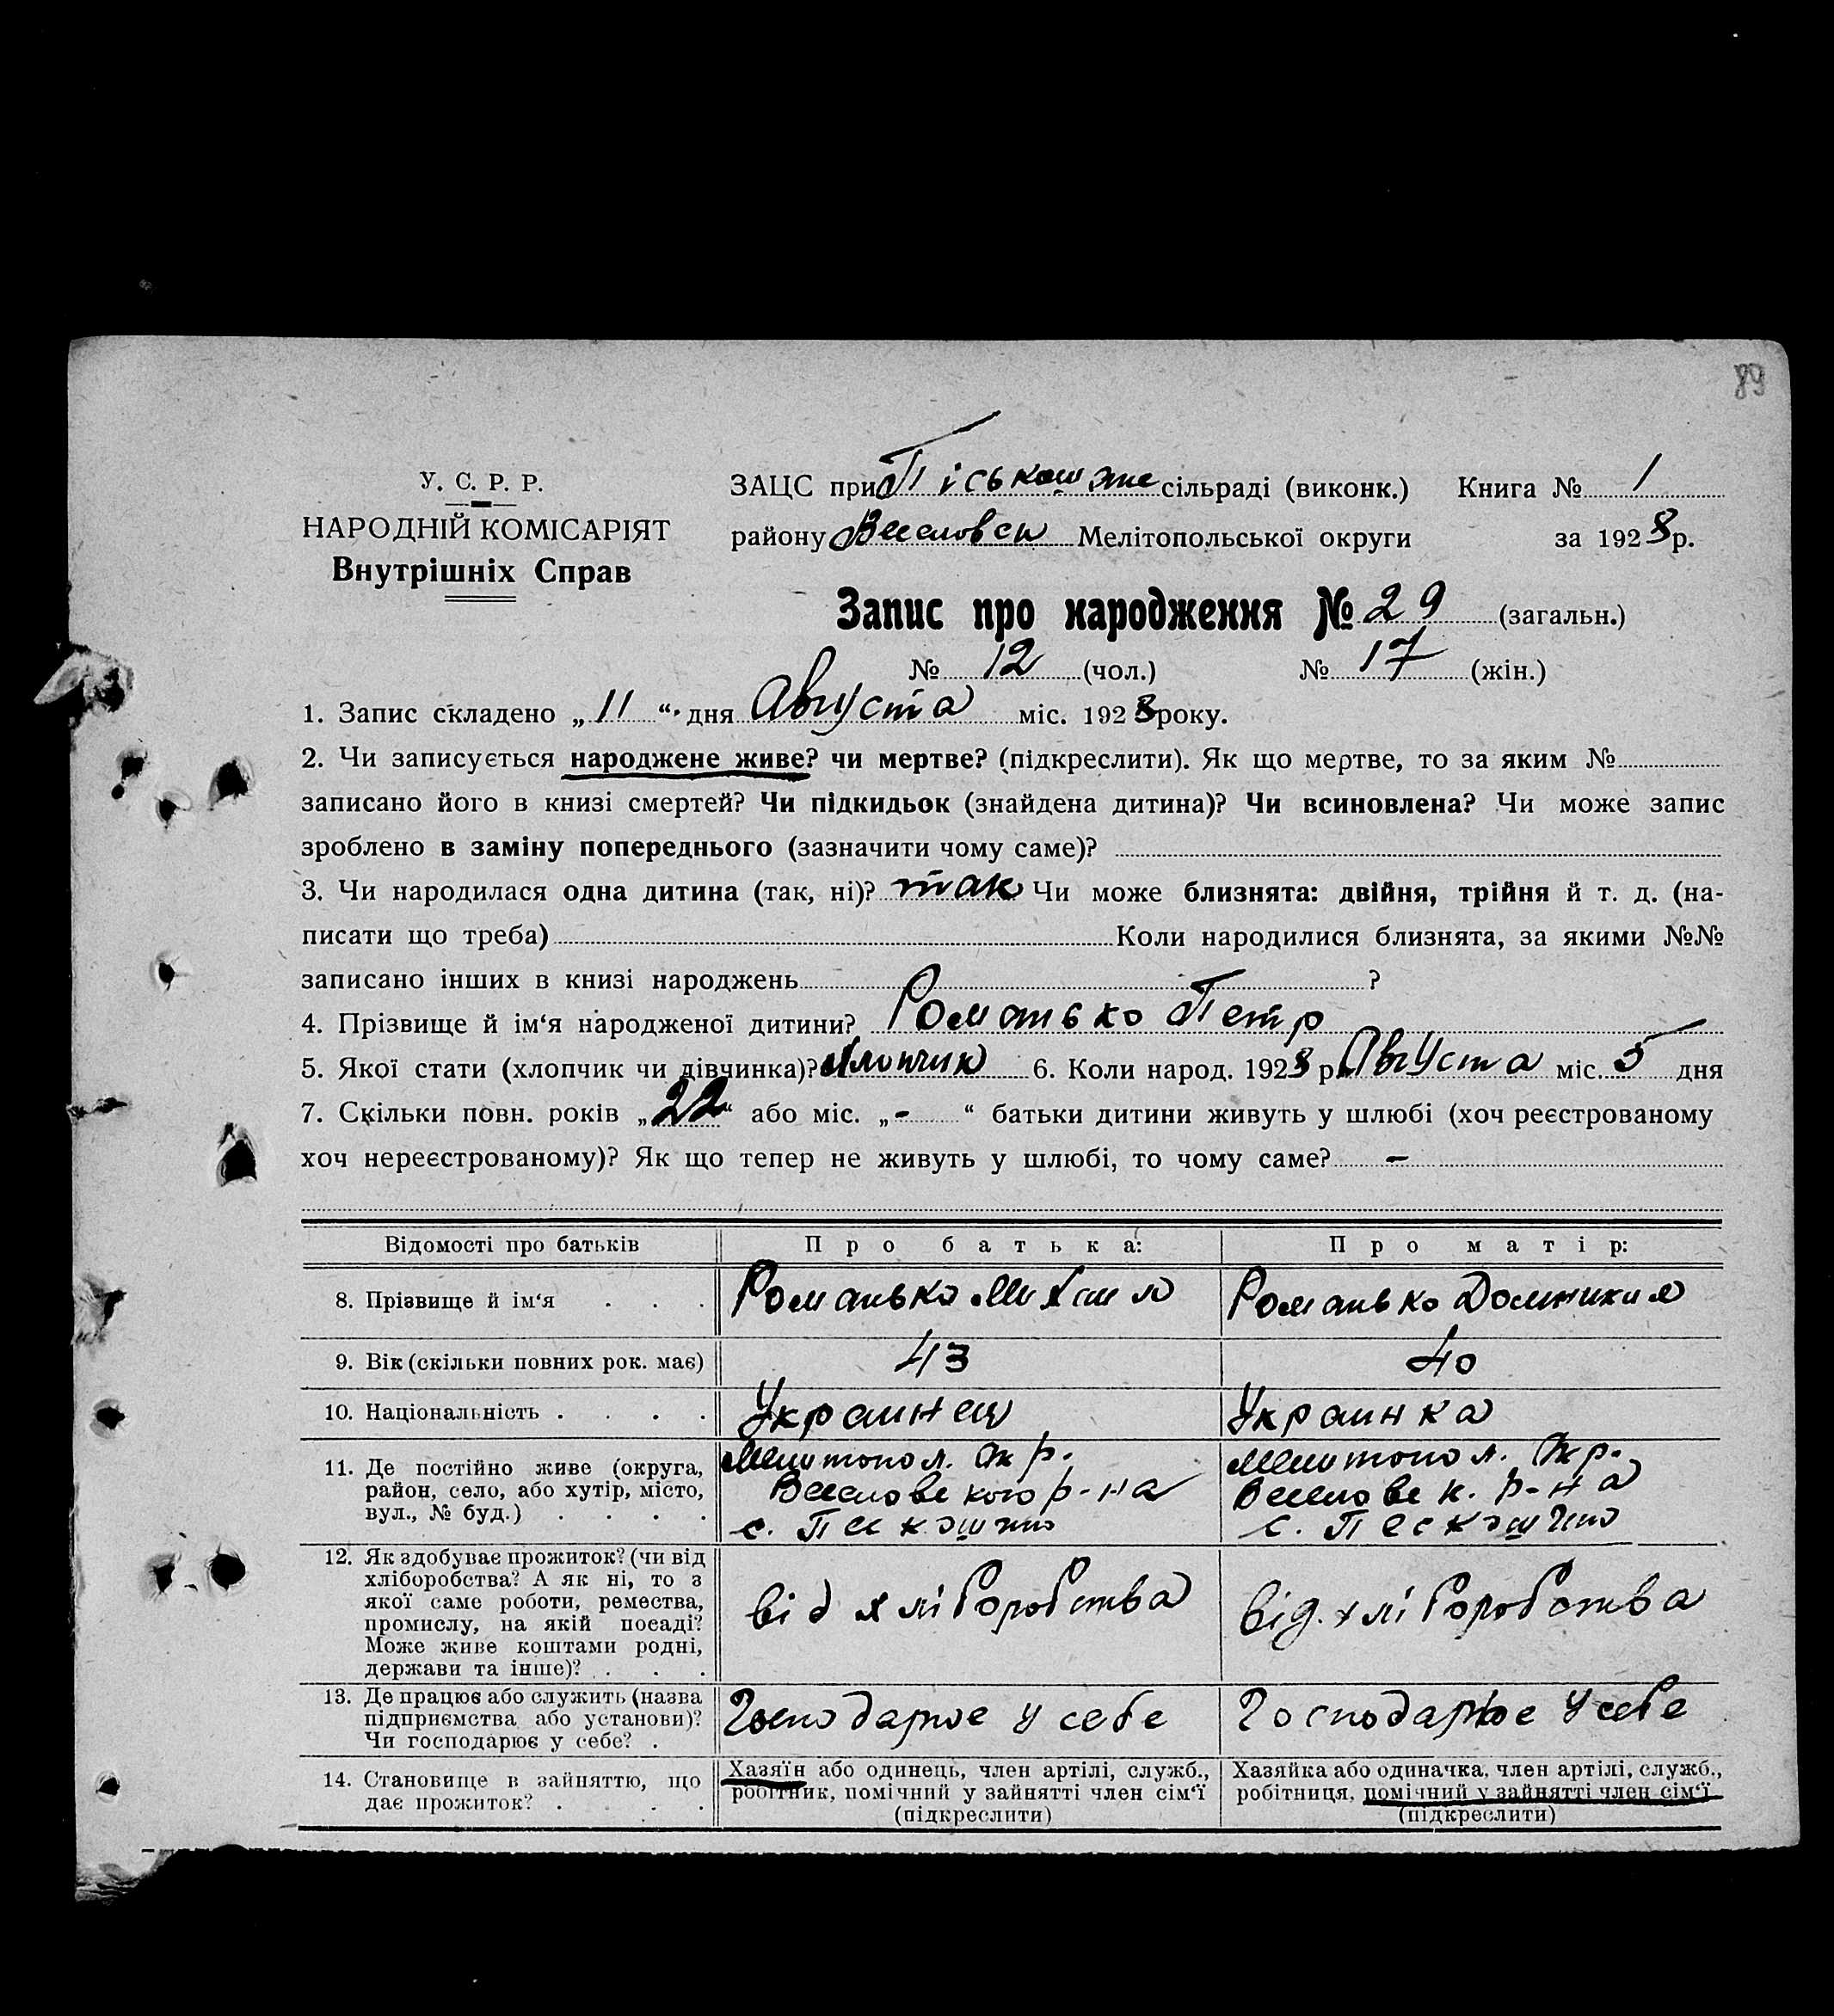 89
У. С. Р. Р.
НАРОДНІЙ КОМІСАРІЯТ
Внутрішніх Справ
ЗАЦС при Піськошине сільраді (виконк.) Книга № 1
району Веселовськ Мелітопольської округи за 1928 р.
Запис про народження № 29 (загальн.)
№ 12 (чол.) № 17 (жін.)
1. Запис складено „11“ дня Августа міс. 1928 року.
2. Чи записується народжене живе? чи мертве? (підкреслити). Як що мертве, то за яким №
записано його в книзі смертей? Чи підкидьок (знайдена дитина)? Чи всиновлена? Чи може запис
зроблено в заміну попереднього (зазначити чому саме)?
3. Чи народилася одна дитина (так, ні)? так Чи може близнята: двійня, трійня й т. д. (на-
писати що треба) Коли народилися близнята, за якими №№
записано інших в книзі народжень ?
4. Прізвище й ім‘я народженої дитини? Романько Петр
5. Якої стати (хлопчик чи дівчинка)? Хлопчик 6. Коли народ. 1928 р. Августа міс. 5 дня
7. Скільки повн. років „22“ або міс. „-“ батьки дитини живуть у шлюбі (хоч реєстрованому
хоч нереєстрованому)? Як що тепер не живуть у шлюбі, то чому саме? -
Відомості про батьків Про батька: Про матір:
8. Прізвище й ім‘я . . . Романько Михаил Романько Домникия
9. Вік (скільки повних рок. має) 43 40
10. Національність . . . . Украинец Украинка
11. Де постійно живе (округа, район, село, або хутір, місто, вул., № буд.) . . . .
Мелитопол. Окр.
Веселовского р-на
с. Пескошино
Мелитопол. Окр.
Веселовск. р-на
с. Пескошино
12. Як здобуває прожиток? (чи від
хліборобства? А як ні, то з
якої саме роботи, ремества,
промислу, на якій посаді?
Може живе коштами родні,
держави та інше)? . . .
від хліборобства
від. хліборобства
13. Де працює або служить (назва
підприємства або установи)?
Чи господарює у себе? .
Господарює у себе
Господарює у себе
14. Становище в зайняттю, що
дає прожиток? . . . .
Хазяїн або одинець, член артілі, служб.,
робітник, помічний у зайнятті член сім‘ї
(підкреслити)
Хазяйка або одиначка, член артілі, служб.,
робітниця, помічний у зайнятті член сім‘ї
(підкреслити)